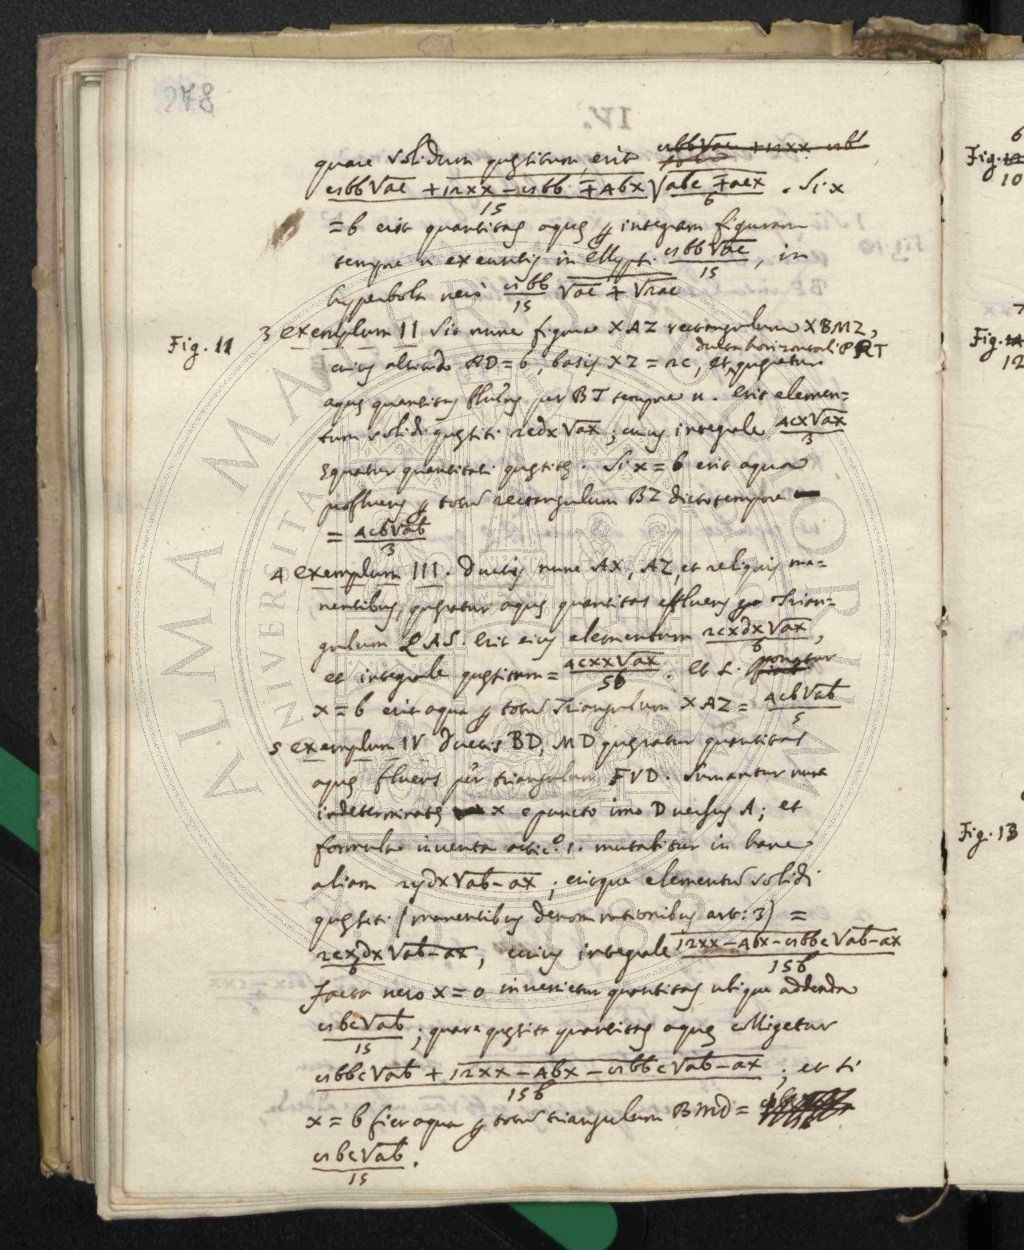 278
quare solidum quęsitum erit
8bb√ac + 12xx − 8bb ∓ 4bx √abc ∓ acx . Si x
15 b
= b erit quantitas aquę p integram figuram
tempore n exeuntis in ellypsi 8bb√ac / 15, in
hyperbola vero 8bb / 15 √ac + √2ac
Fig. 11
3 Exemplum II Sit nunc figura XAZ rectangulum XBMZ,
ducta horizontali PRT
cuius altitudo AD = b, basis XZ = 2c, et quęratur
aquę quantitas fluens per BT tempore n. Erit elemen=
tum solidi quęsiti 2cdx√ax; cuius integrale 4cx√ax / 3
ęquatur quantitati quęsitę. Si x = b erit aqua
profluens p totum rectangulum BZ dicto tempore
= 4cb√ab / 3
4 Exemplum III. Ductis nunc AX, AZ, et reliquis ma=
nentibus, quęratur aquę quantitas effluens pro Trian=
gulum QAS. Erit eius elementum 2cxdx√ax / b,
et integrale quęsitum = 4cxx√ax / 5b. et s. ponatur
x = b erit aqua p totum Triangulum XAZ = 4cb√ab / 5
5 Exemplum IV Ductis BD, MD quęratur quantitas
aquę fluens per triangulum FVD. Sumantur nunc
indeterminatę x e puncto imo D versus A; et
formula inventa artic.º 1. mutabitur in hanc
aliam 2ydx√ab − ax; eritque elementum solidi
quęsiti (manentibus denominationibus art: 3) =
2cxdx / b √ab − ax, cuius integrale 12xx − 4bx − 8bbc√ab − ax / 15b
Facta vero x = o invenietur quantitas ubique addenda
8bc√ab / 15; quare quęsita quantitas aquę colligetur
8bbc√ab + 12xx − 4bx − 8bbc√ab − ax / 15b; et si
x = b fiet aqua p totum triangulum BMD =
8bc√ab / 15.
6
Fig.
10
7
Fig.
12
Fig. 13